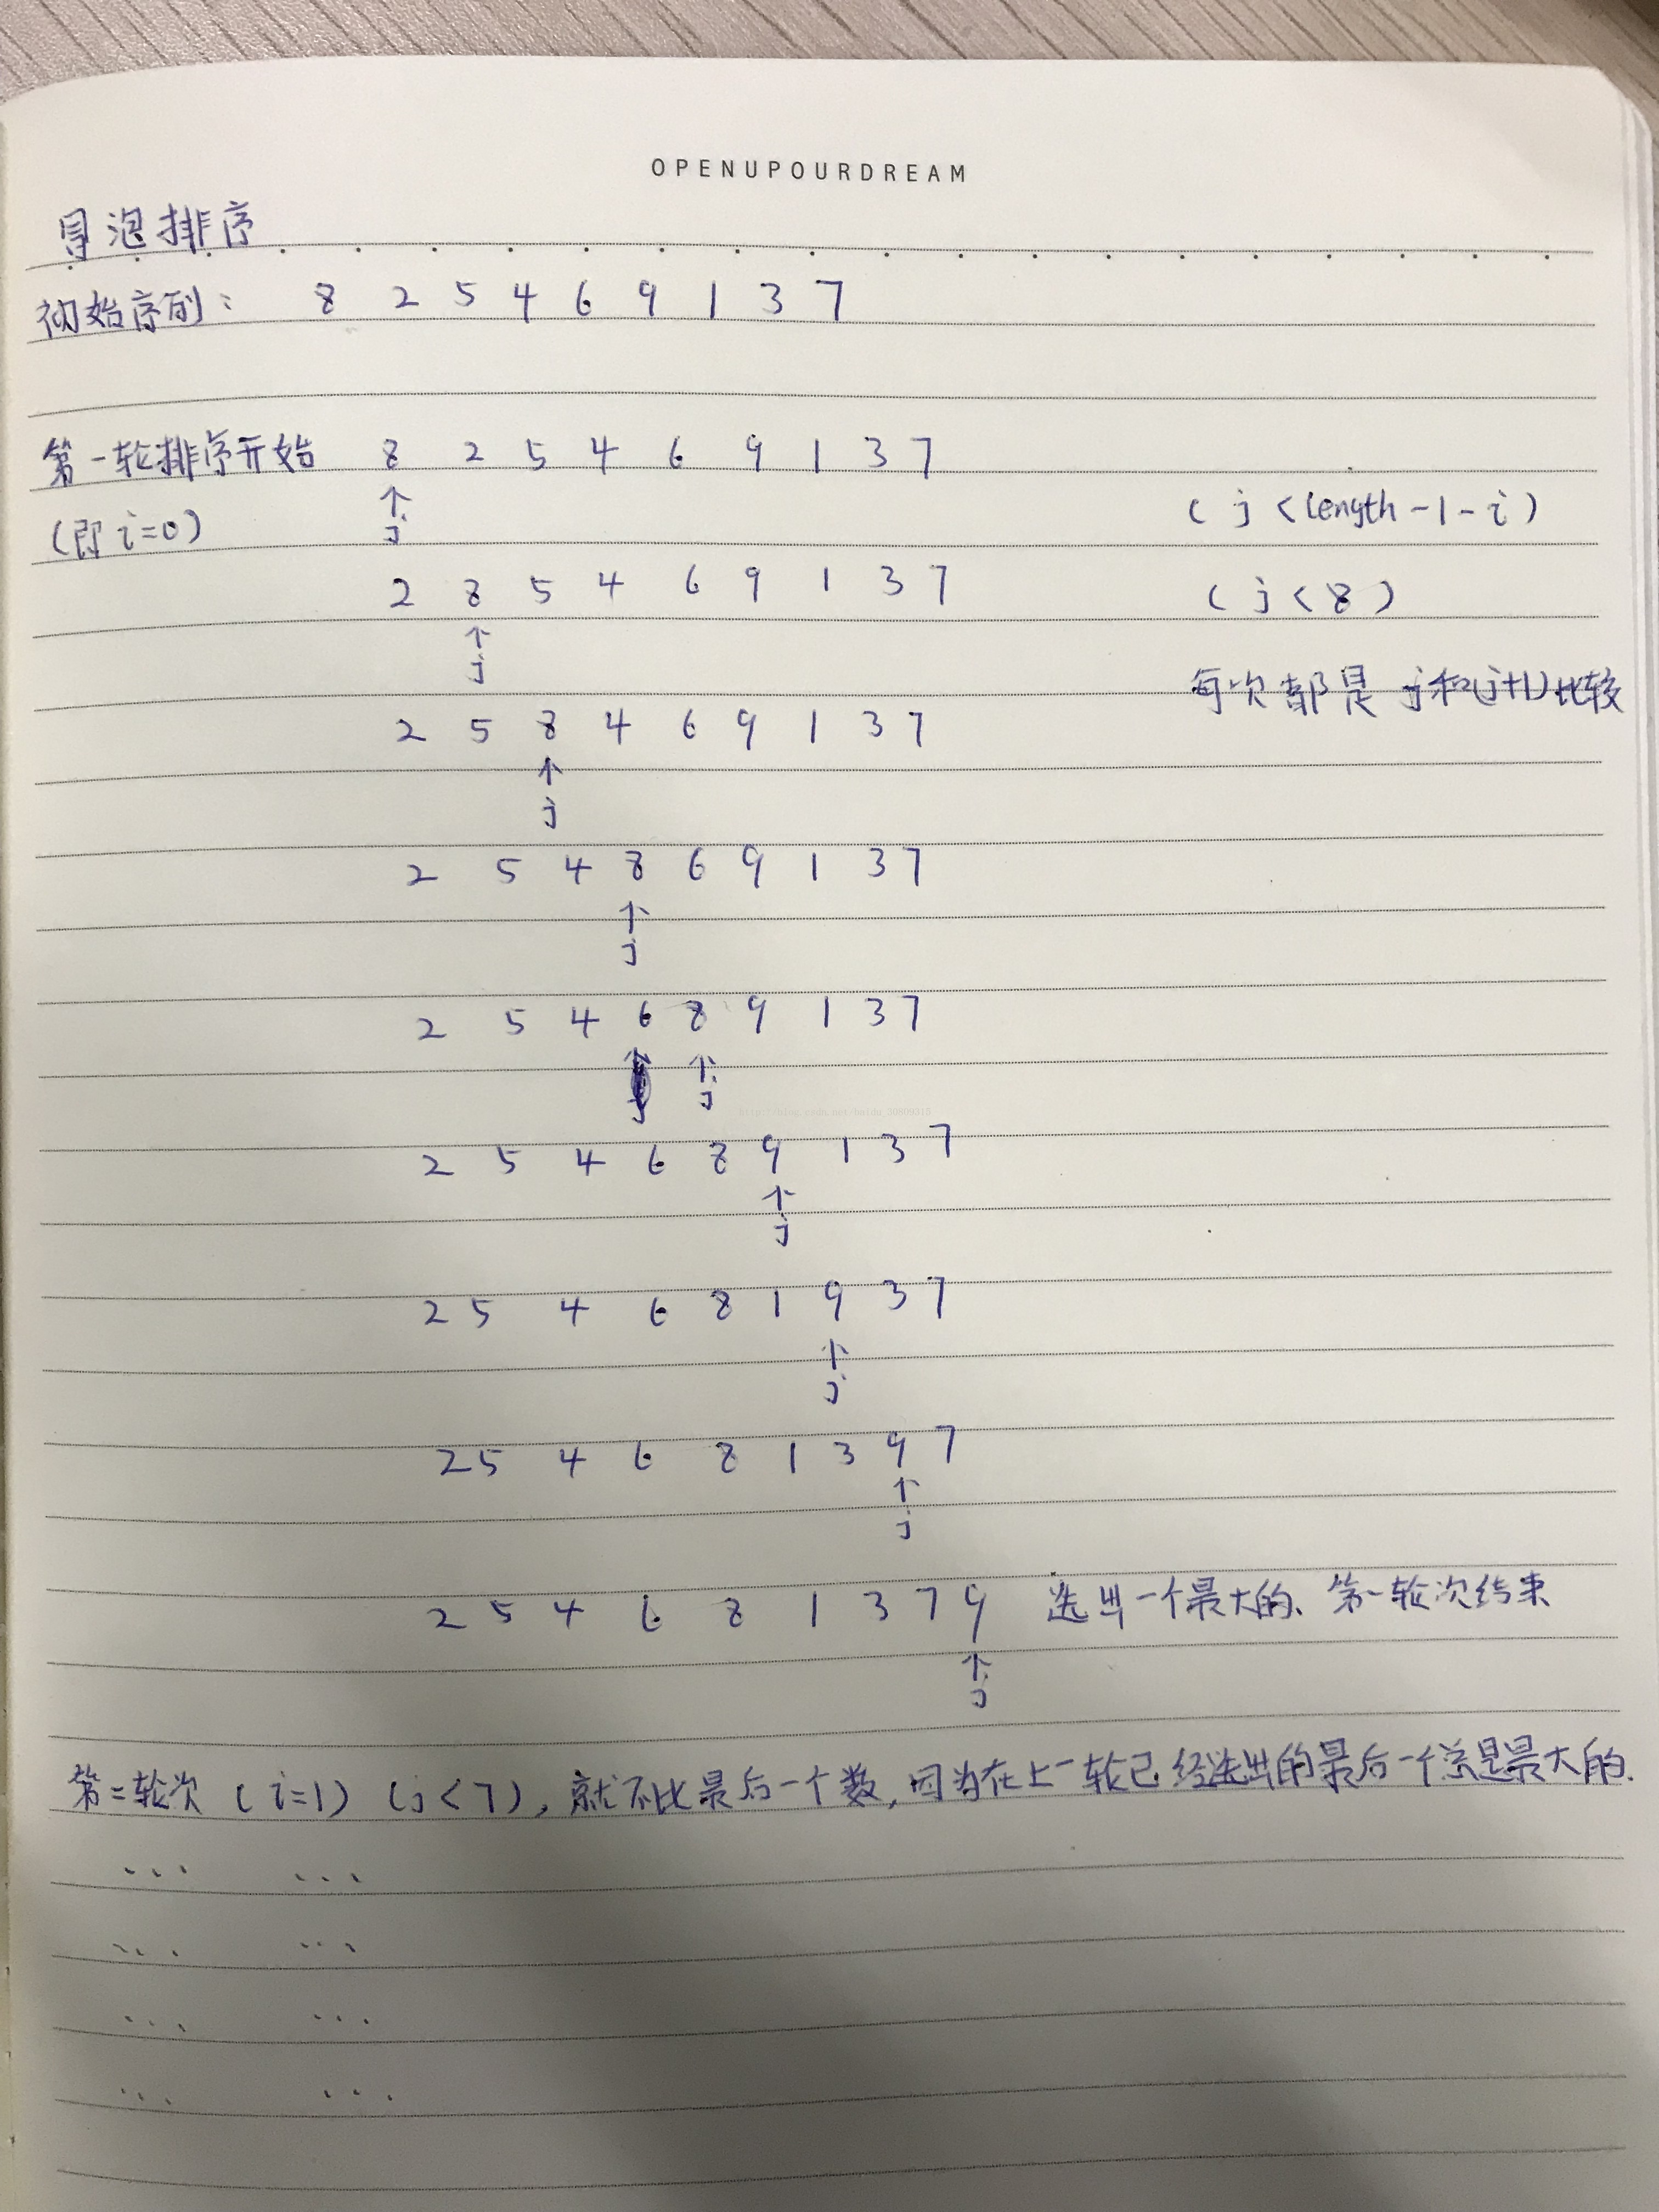 OPENUPOURDREAM
冒泡排序
初始序列: 8 2 5 4 6 9 1 3 7
第一轮排序开始 8 2 5 4 6 9 1 3 7
↑ (j<length-1-i)
(即i=0) j
2 8 5 4 6 9 1 3 7 (j<8)
↑
j 每次都是 j和(j+1)比较
2 5 8 4 6 9 1 3 7
↑
j
2 5 4 8 6 9 1 3 7
↑
j
2 5 4 6 8 9 1 3 7
↑
j
http://blog.csdn.net/baidu_30809315
2 5 4 6 8 9 1 3 7
↑
j
2 5 4 6 8 1 9 3 7
↑
j
2 5 4 6 8 1 3 9 7
↑
j
2 5 4 6 8 1 3 7 9 选出一个最大的、第一轮次结束
↑
j
第二轮次 (i=1) (j<7), 就不比最后一个数, 因为在上一轮已经选出的最后一个总是最大的.
... ...
... ...
... ...
... ...